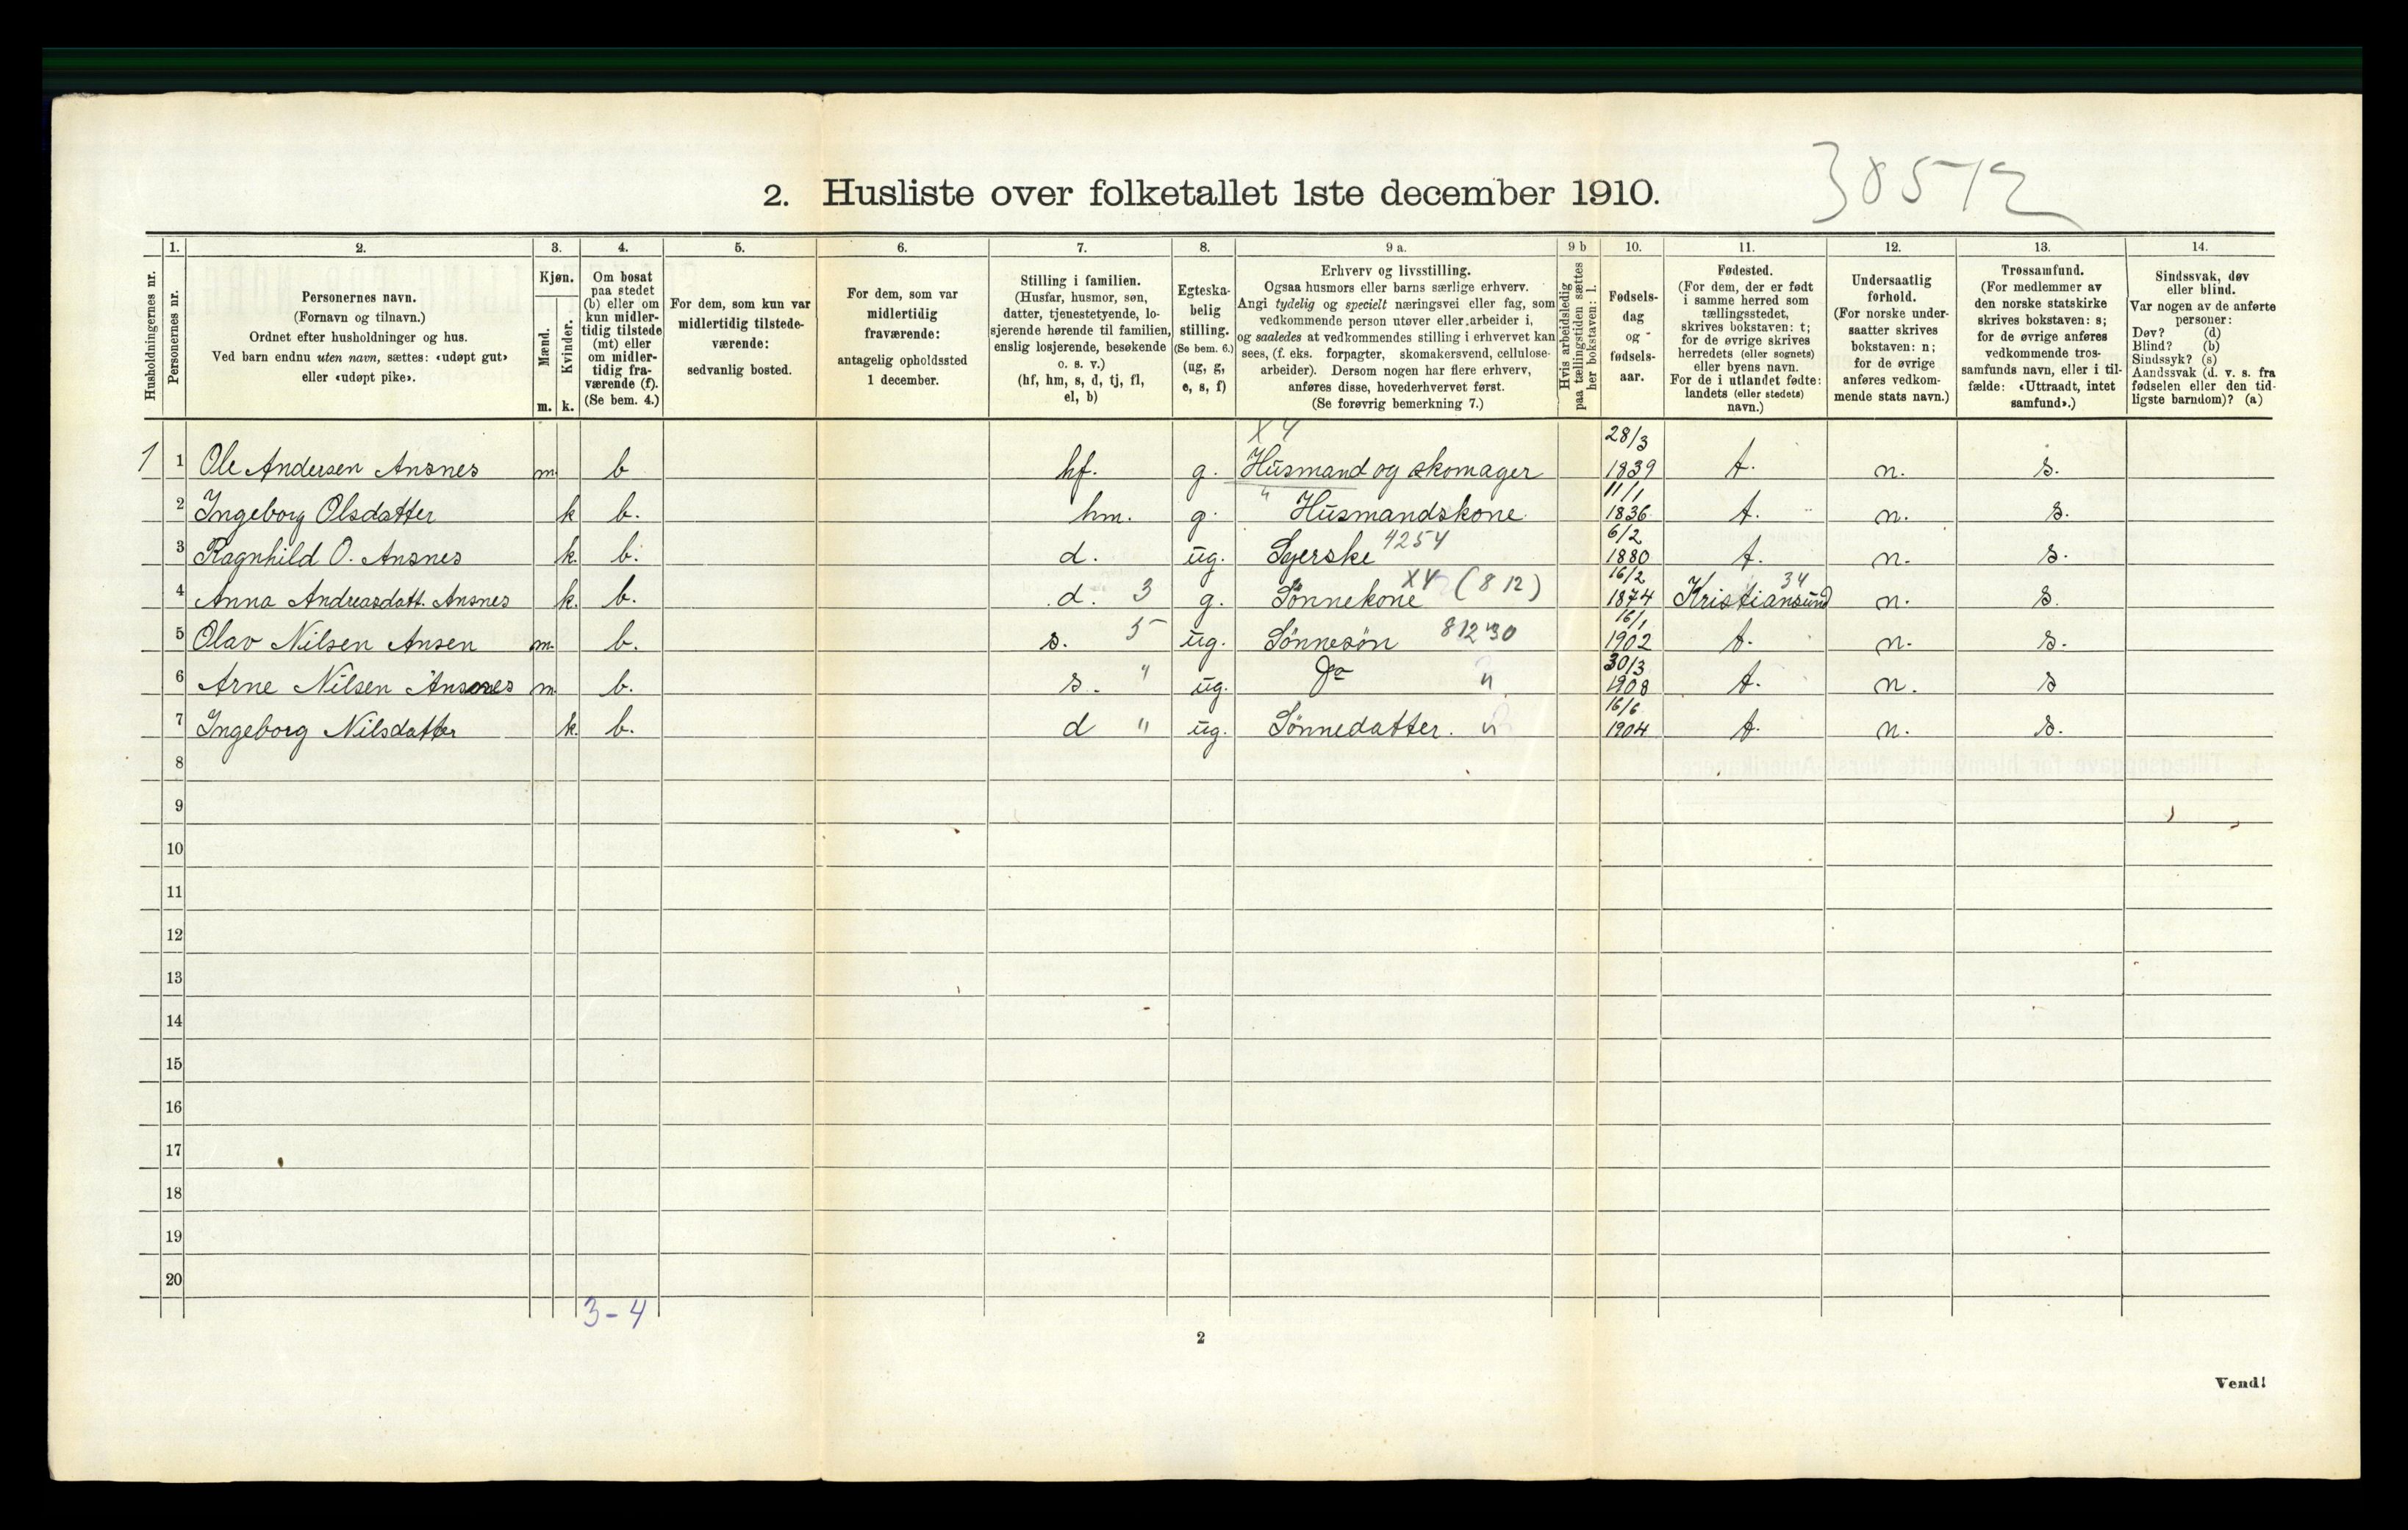 38512
2. Husliste over folketallet 1ste december 1910.
1. 2. 3. 4. 5. 6. 7. 8. 9 a. 9 b 10. 11. 12. 13. 14.
Husholdningernes nr.
Personernes nr.
Personernes navn.
(Fornavn og tilnavn.)
Ordnet efter husholdninger og hus.
Ved barn endnu uten navn, sættes: «udøpt gut»
eller «udøpt pike».
Kjøn.
Mænd.
Kvinder.
m. k.
Om bosat
paa stedet
(b) eller om
kun midler-
tidig tilstede
(mt) eller
om midler-
tidig fra-
værende (f).
(Se bem. 4.)
For dem, som kun var
midlertidig tilstede-
værende:
sedvanlig bosted.
For dem, som var
midlertidig
fraværende:
antagelig opholdssted
1 december.
Stilling i familien.
(Husfar, husmor, søn,
datter, tjenestetyende, lo-
sjerende hørende til familien,
enslig losjerende, besøkende
o. s. v.)
(hf, hm, s, d, tj, fl,
el, b)
Egteska-
belig
stilling.
(Se bem. 6.)
(ug, g,
e, s, f)
Erhverv og livsstilling.
Ogsaa husmors eller barns særlige erhverv.
Angi tydelig og specielt næringsvei eller fag, som
vedkommende person utøver eller arbeider i,
og saaledes at vedkommendes stilling i erhvervet kan
sees, (f. eks. forpagter, skomakersvend, cellulose-
arbeider). Dersom nogen har flere erhverv,
anføres disse, hovederhvervet først.
(Se forøvrig bemerkning 7.)
Hvis arbeidsledig
paa tællingstiden sættes
her bokstaven: l.
Fødsels-
dag
og
fødsels-
aar.
Fødested.
(For dem, der er født
i samme herred som
tællingsstedet,
skrives bokstaven: t;
for de øvrige skrives
herredets (eller sognets)
eller byens navn.
For de i utlandet fødte:
landets (eller stedets)
navn.)
Undersaatlig
forhold.
(For norske under-
saatter skrives
bokstaven: n;
for de øvrige
anføres vedkom-
mende stats navn.)
Trossamfund.
(For medlemmer av
den norske statskirke
skrives bokstaven: s;
for de øvrige anføres
vedkommende tros-
samfunds navn, eller i til-
fælde: «Uttraadt, intet
samfund».)
Sindssvak, døv
eller blind.
Var nogen av de anførte
personer:
Døv? (d)
Blind? (b)
Sindssyk? (s)
Aandssvak (d. v. s. fra
fødselen eller den tid-
ligste barndom)? (a)
X4 28/3
1 1 Ole Andersen Ansnes m. b hf. g. Husmand og skomager 1839 t. n. s.
" 11/1
2 Ingeborg Olsdatter k b. hm. g. Husmandskone 1836 t. n. s.
4254 6/2
3 Ragnhild O. Ansnes k. b. d. ug. Syerske 1880 t. n. s.
X4 (812) 16/2 34
4 Anna Andreasdatt. Ansnes k. b. d. 3 g. Sønnekone 1874 Kristiansund n. s.
16/1
5 Olav Nilsen Ansen m. b. s. 5 ug. Sønnesøn 812 30 1902 t. n. s.
30/3
6 Arne Nilsen Ansnes m. b. s. " ug. Do " 1908 t. n. s
16/6
7 Ingeborg Nilsdatter k. b. d " ug. Sønnedatter. " 1904 t. n. s.
8
9
10
11
12
13
14
15
16
17
18
19
20
3-4
2
Vend!